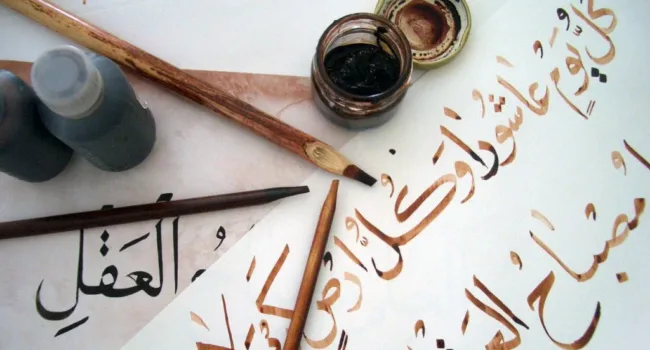 كُلُّ يَومٍ عاشُورا وَ كُلُّ اَرضٍ
مصباح
العَقلِ